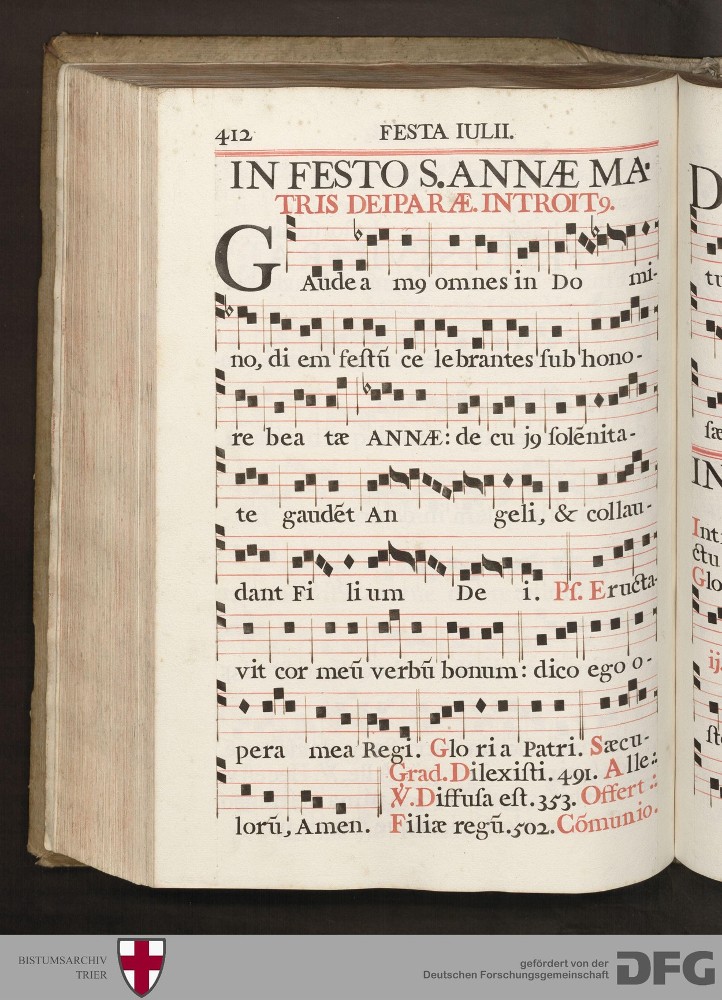 412 FESTA IULII.
IN FESTO S. ANNÆ MA-
TRIS DEIPARÆ. INTROIT9.
Gaudea m9 omnes in Do mi-
no, di em festū ce lebrantes sub hono-
re bea tæ ANNÆ: de cu j9 solēnita-
te gaudēt An geli, & collau-
dant Fi lium De i. Ps. Eructa-
vit cor meū verbū bonum: dico ego o-
pera mea Regi. Glo ri a Patri. Sæcu-
lorū, Amen.
Grad. Dilexisti. 491. Alle:
℣. Diffusa est. 353. Offert:
Filiæ regū. 502. Cōmunio.
D
tu
sæ
IN
Int
ctu
Glo
ij
st
BISTUMSARCHIV
TRIER
gefördert von der
Deutschen Forschungsgemeinschaft
DFG